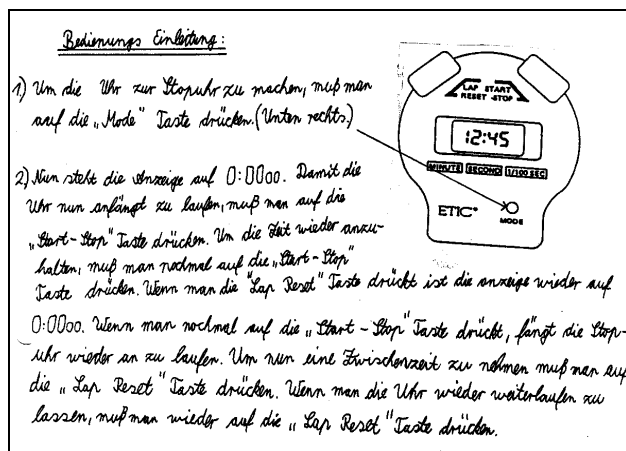 Bedienungs Einleitung:
1) Um die Uhr zur Stopuhr zu machen, muß man
auf die „Mode" Taste drücken. (Unten rechts.)
2) Nun steht die Anzeige auf 0:00oo. Damit die
Uhr nun anfängt zu laufen, muß man auf die
„Start-Stop" Taste drücken. Um die Zeit wieder anzu-
halten, muß man nochmal auf die „Start-Stop"
Taste drücken. Wenn man die "Lap Reset" Taste drückt ist die anzeige wieder auf
0:00oo. Wenn man nochmal auf die „Start-Stop" Taste drückt, fängt die Stop-
uhr wieder an zu laufen. Um nun eine Zwischenzeit zu nehmen muß man auf
die „Lap Reset" Taste drücken. Wenn man die Uhr wieder weiterlaufen zu
lassen, muß man wieder auf die „Lap Reset" Taste drücken.
LAP START
RESET -STOP
12:45
MINUTE SECOND 1/100 SEC
ETIC
MODE